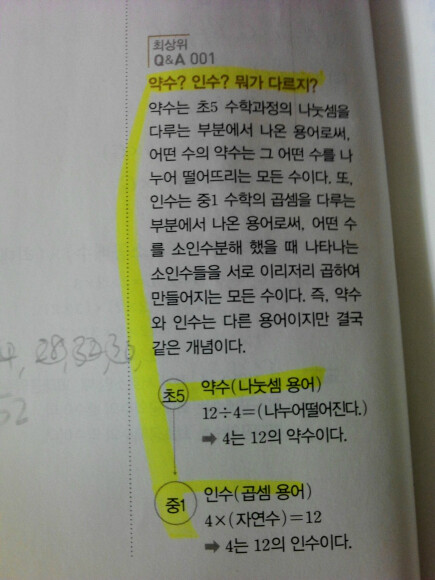 최상위
Q&A 001
약수? 인수? 뭐가 다르지?
약수는 초5 수학과정의 나눗셈을
다루는 부분에서 나온 용어로써,
어떤 수의 약수는 그 어떤 수를 나
누어 떨어뜨리는 모든 수이다. 또,
인수는 중1 수학의 곱셈을 다루는
부분에서 나온 용어로써, 어떤 수
를 소인수분해 했을 때 나타나는
소인수들을 서로 이리저리 곱하여
만들어지는 모든 수이다. 즉, 약수
와 인수는 다른 용어이지만 결국
같은 개념이다.
28, 32, 36,
52
초5 약수(나눗셈 용어)
12÷4=(나누어떨어진다.)
➡ 4는 12의 약수이다.
중1 인수(곱셈 용어)
4×(자연수)=12
➡ 4는 12의 인수이다.